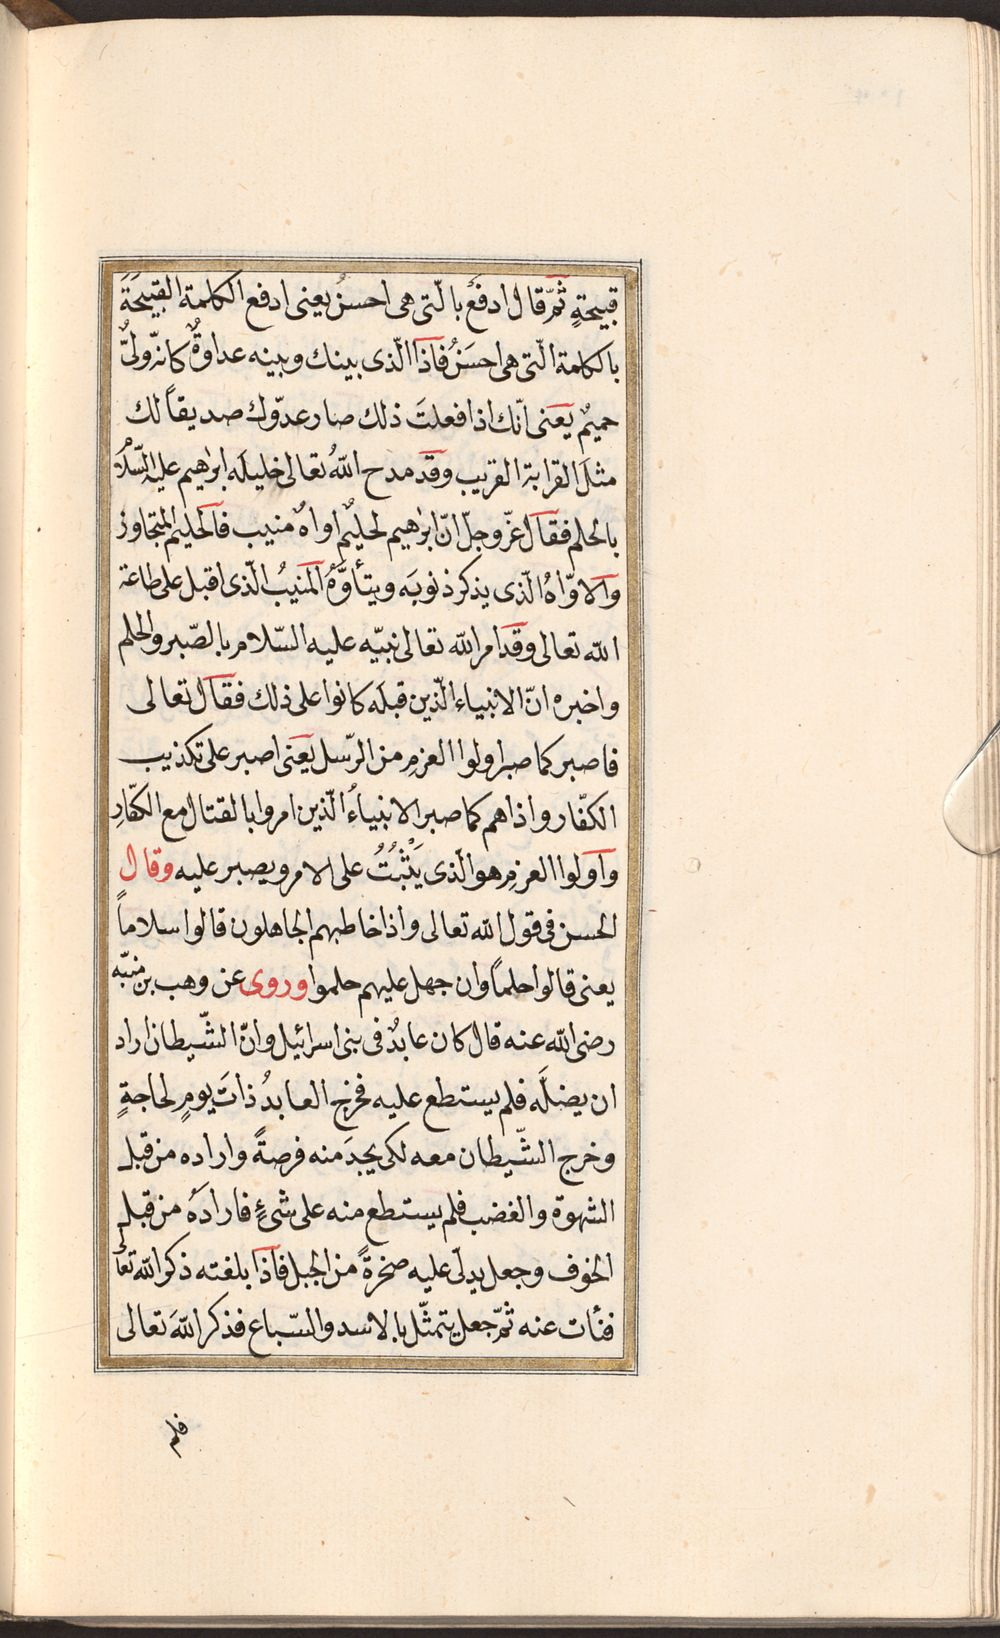 قبيحةٍ ثمّ قال ادفعْ بالّتى هى احسنُ يعنى ادفع الكلمة القبيحَةَ
بالكلمة الّتى هى احسَنُ فاذا الّذى بينك وبينه عداوةٌ كانّه ولىٌّ
حميمٌ يعنى انّك اذا فعلتَ ذلك صار عدّوك صديقاً لك
مثلَ القرابة القريب وقد مدح اللّٰهُ تعالى خليلَه ابرٰهيم عليه السّلامُ
بالحلم فقال عزّ وجلّ انّ ابرٰهيم لحليمٌ اواهٌ منيب فالحليم المتجاوز
والاوّاهُ الّذى يذكر ذنوبَه ويتأوَّهُ المنيبُ الّذى اقبل على طاعة
اللّه تعالى وقد امر اللّه تعالى نبيّه عليه السّلام بالصّبر والحلم
واخبره انّ الانبياء الّذين قبلَه كانوا على ذلك فقال تعالى
فاصبر كما صبر اولوا العزمِ من الرّسل يعنى اصبر على تكذيب
الكفّار واذاهم كما صبر الانبياءُ الّذين امروا بالقتال مع الكفّارِ
واولوا العزمِ هو الّذى يَثْبُتُ على الامر ويصبر عليه وقال
الحسن فى قول اللّه تعالى واذا خاطبهم الجاهلون قالوا سلاماً
يعنى قالوا حلماً وان جهل عليهم حلموا وروى عن وهب بن منبّه
رضى اللّه عنه قال كان عابدٌ فى بنى اسرائيل وانّ الشّيطان اراد
ان يضلَّه فلم يستطع عليه فخرج العابدُ ذاتَ يومٍ لحاجةٍ
وخرج الشّيطان معه لكى يجدَ منه فرصةً واراده من قبل
الشهوة والغضب فلم يستطع منه على شئٍ فارادَهُ من قبل
الخوف وجعل يدلّى عليه صخرةً من الجبل فاذا بلغته ذكر اللّه تعالى
فنأت عنه ثمّ جعل يتمثّل بالاسد والسّباع فذكر اللّهَ تعالى
فلم